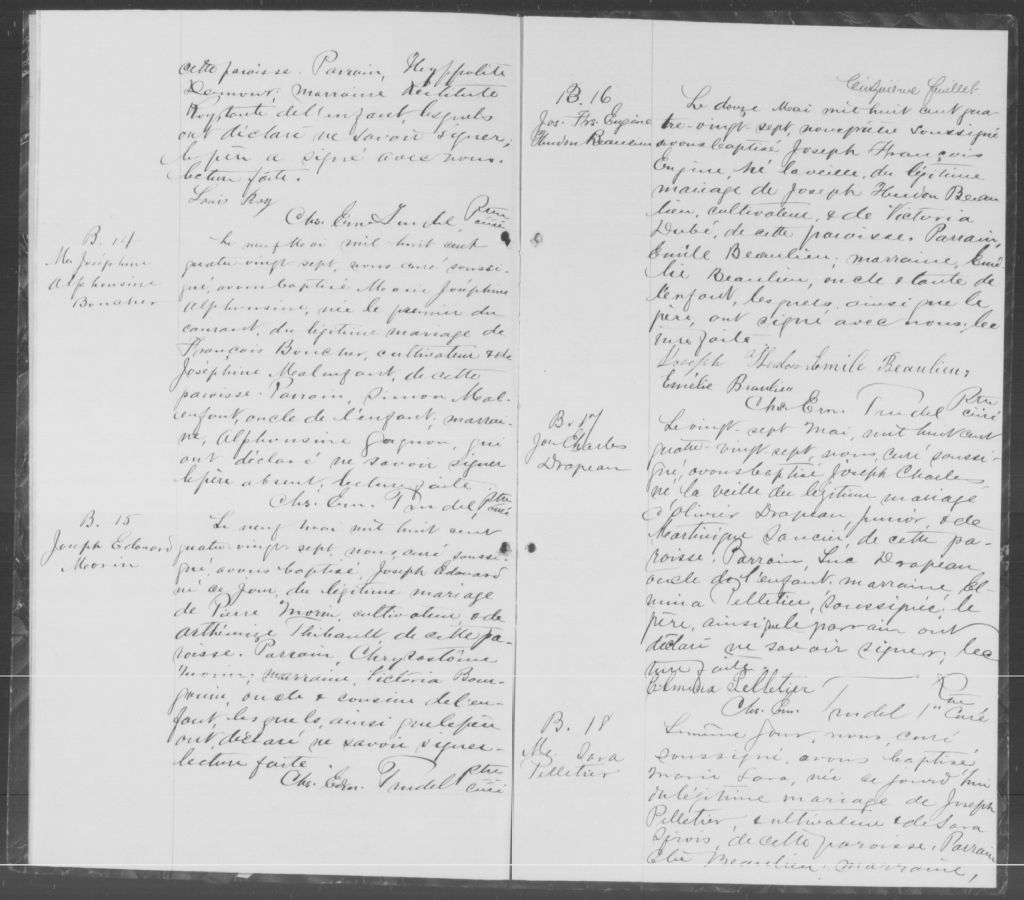 cette paroisse. Parrain, Hyppolite
Damour; marraine
tante de l'enfant, lesquels
ont déclaré ne savoir signer;
le père a signé avec nous.
lecture faite.
Louis Roy
Chs. Ern. Trudel, Ptre curé
B. 14
Me Joséphine
Alphonsine
Boucher
Le neuf Mai mil huit cent
quatre-vingt sept, nous curé soussi-
gné, avons baptisé Marie Joséphine
Alphonsine, née le premier du
courant, du légitime mariage de
François Boucher, cultivateur & de
Joséphine Malenfant, de cette
paroisse. Parrain, Simon Mal-
enfant, oncle de l'enfant; marrai-
ne, Alphonsine Gagnon, qui
ont déclaré ne savoir signer
le père absent, lecture faite
Chs. Ern. Trudel, Ptre curé
B. 15
Joseph Edouard
Morin
Le neuf mai mil huit cent
quatre-vingt sept, nous, curé, soussi-
gné, avons baptisé, Joseph Edouard
né ce jour, du légitime mariage
de Pierre Morin, cultivateur, & de
Arthémise Thibault, de cette pa-
roisse. Parrain, Chrysostôme
Morin; marraine, Victoria Bour-
goin, oncle & cousine de l'en-
fant, lesquels, ainsi que le père
ont déclaré ne savoir signer-
lecture faite.
Chs. Ern. Trudel Ptre curé
Cinquième feuillet
B. 16
Jos. Frs. Eugène
Hudon Beaulieu
Le douze Mai mil huit cent qua-
tre-vingt-sept, nous prêtre soussigné
avons baptisé Joseph François
Eugène, né la veille, du légitime
mariage de Joseph Hudon Beau
lieu, cultivateur, & de Victoria
Dubé, de cette paroisse. Parrain,
Emile Beaulieu; marraine, Emé-
lie Beaulieu, oncle & tante de
l'enfant, lesquels, ainsi que le
père, ont signé avec nous; lec
ture faite.
Joseph Hudon Emile Beaulieu;
Emélie Beaulieu
Chs. Ern. Trudel Ptre curé
B. 17
Jos Charles
Drapeau
Le vingt-sept Mai, mil huit cent
quatre-vingt-sept, nous, curé soussi-
gné, avons baptisé Joseph Charles
né la veille du légitime mariage
d'Olivier Drapeau, junior, & de
Martinique Saucier, de cette pa-
roisse. Parrain, Luc Drapeau,
oncle de l'enfant, marraine, El-
mina Pelletier, soussignée; le
père, ainsi que le parrain ont
déclaré ne savoir signer; lec
ture faite.
Elmina Pelletier
Chs. Ern. Trudel Ptre Curé
B. 18
Me. Sara
Pelletier
Le même jour, nous, curé
soussigné, avons baptisé
Marie Sara, née ce jourd'hui
du légitime mariage de Joseph
Pelletier, cultivateur & de Sara
Sirois, de cette paroisse. Parrain
Elie Beaulieu; marraine,